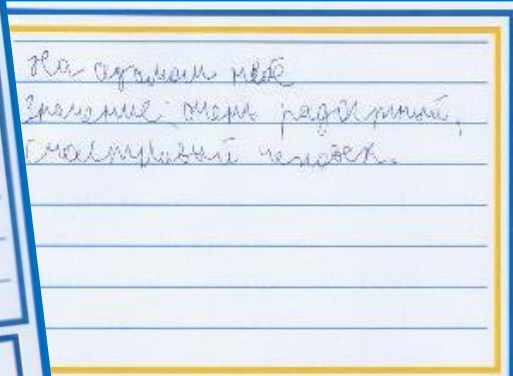 На
значение: очень радостный,
счастливый человек.